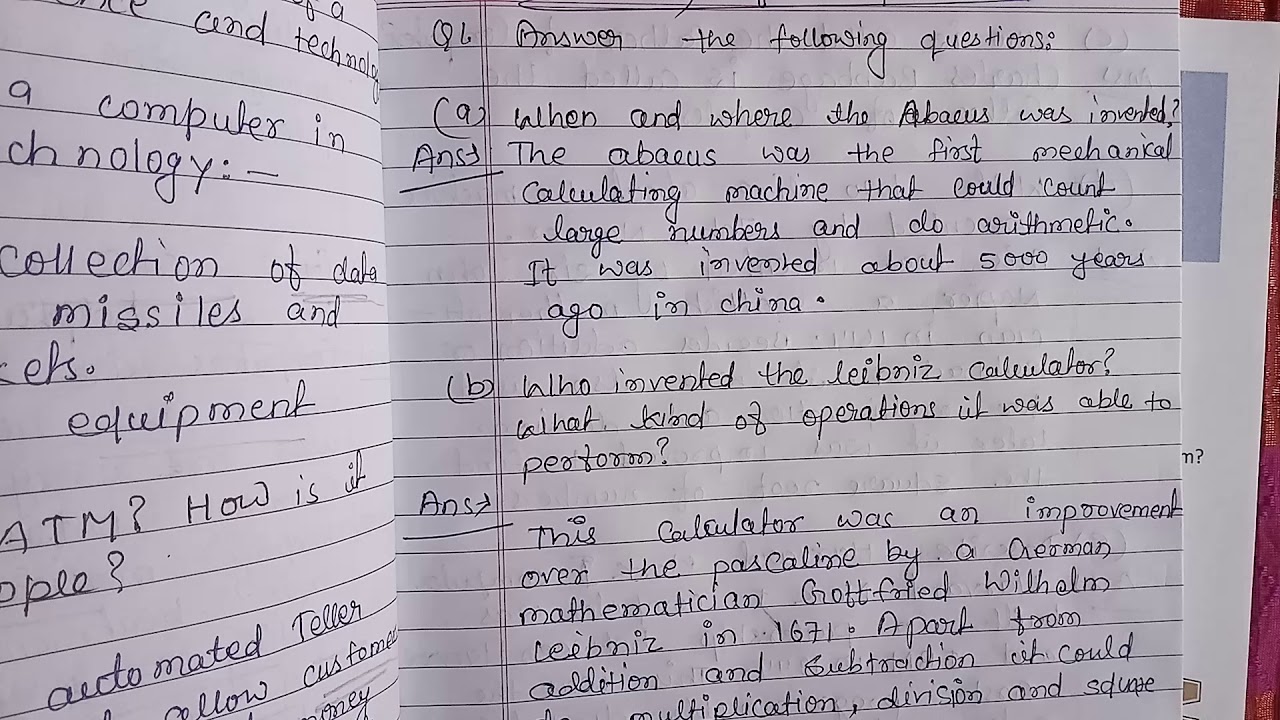 and technolog
a computer in
chnology:-
Collection of data
missiles and
ets.
equipment
ATM? How is it
ople?
automated Teller
allow custome
money
Q6 Answer the following questions:
(a) When and where the Abacus was invented?
Ans→ The abacus was the first mechanical
Calculating machine that could count
large numbers and do arithmetic.
It was invented about 5000 years
ago in china.
(b) Who invented the leibniz Calculator?
What kind of operations it was able to
perform?
Ans→
This Calculator was an improvement
over the pascaline by a German
mathematician Gottfried Wilhelm
Leibniz in 1671. Apart from
addition and subtraction it could
multiplication, division and square
n?